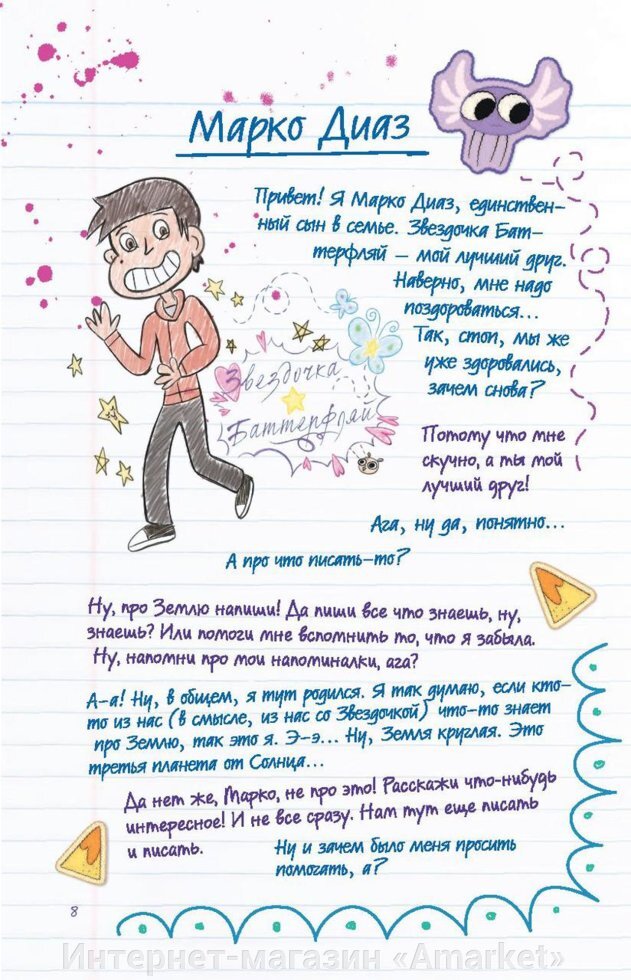 Марко Диаз
Привет! Я Марко Диаз, единствен-
ный сын в семье. Звездочка Бат-
терфляй — мой лучший друг.
Наверно, мне надо
поздороваться...
Так, стоп, мы же
уже здоровались,
зачем снова?
Звездочка
Баттерфляй
Потому что мне
скучно, а ты мой
лучший друг!
Ага, ну да, понятно...
А про что писать-то?
Ну, про Землю напиши! Да пиши все что знаешь, ну,
знаешь? Или помоги мне вспомнить то, что я забыла.
Ну, напомни про мои напоминалки, ага?
А-а! Ну, в общем, я тут родился. Я так думаю, если кто-
то из нас (в смысле, из нас со Звездочкой) что-то знает
про Землю, так это я. Э-э... Ну, Земля круглая. Это
третья планета от Солнца...
Да нет же, Марко, не про это! Расскажи что-нибудь
интересное! И не все сразу. Нам тут еще писать
и писать.
Ну и зачем было меня просить
помогать, а?
8
Интернет-магазин «Amarket»